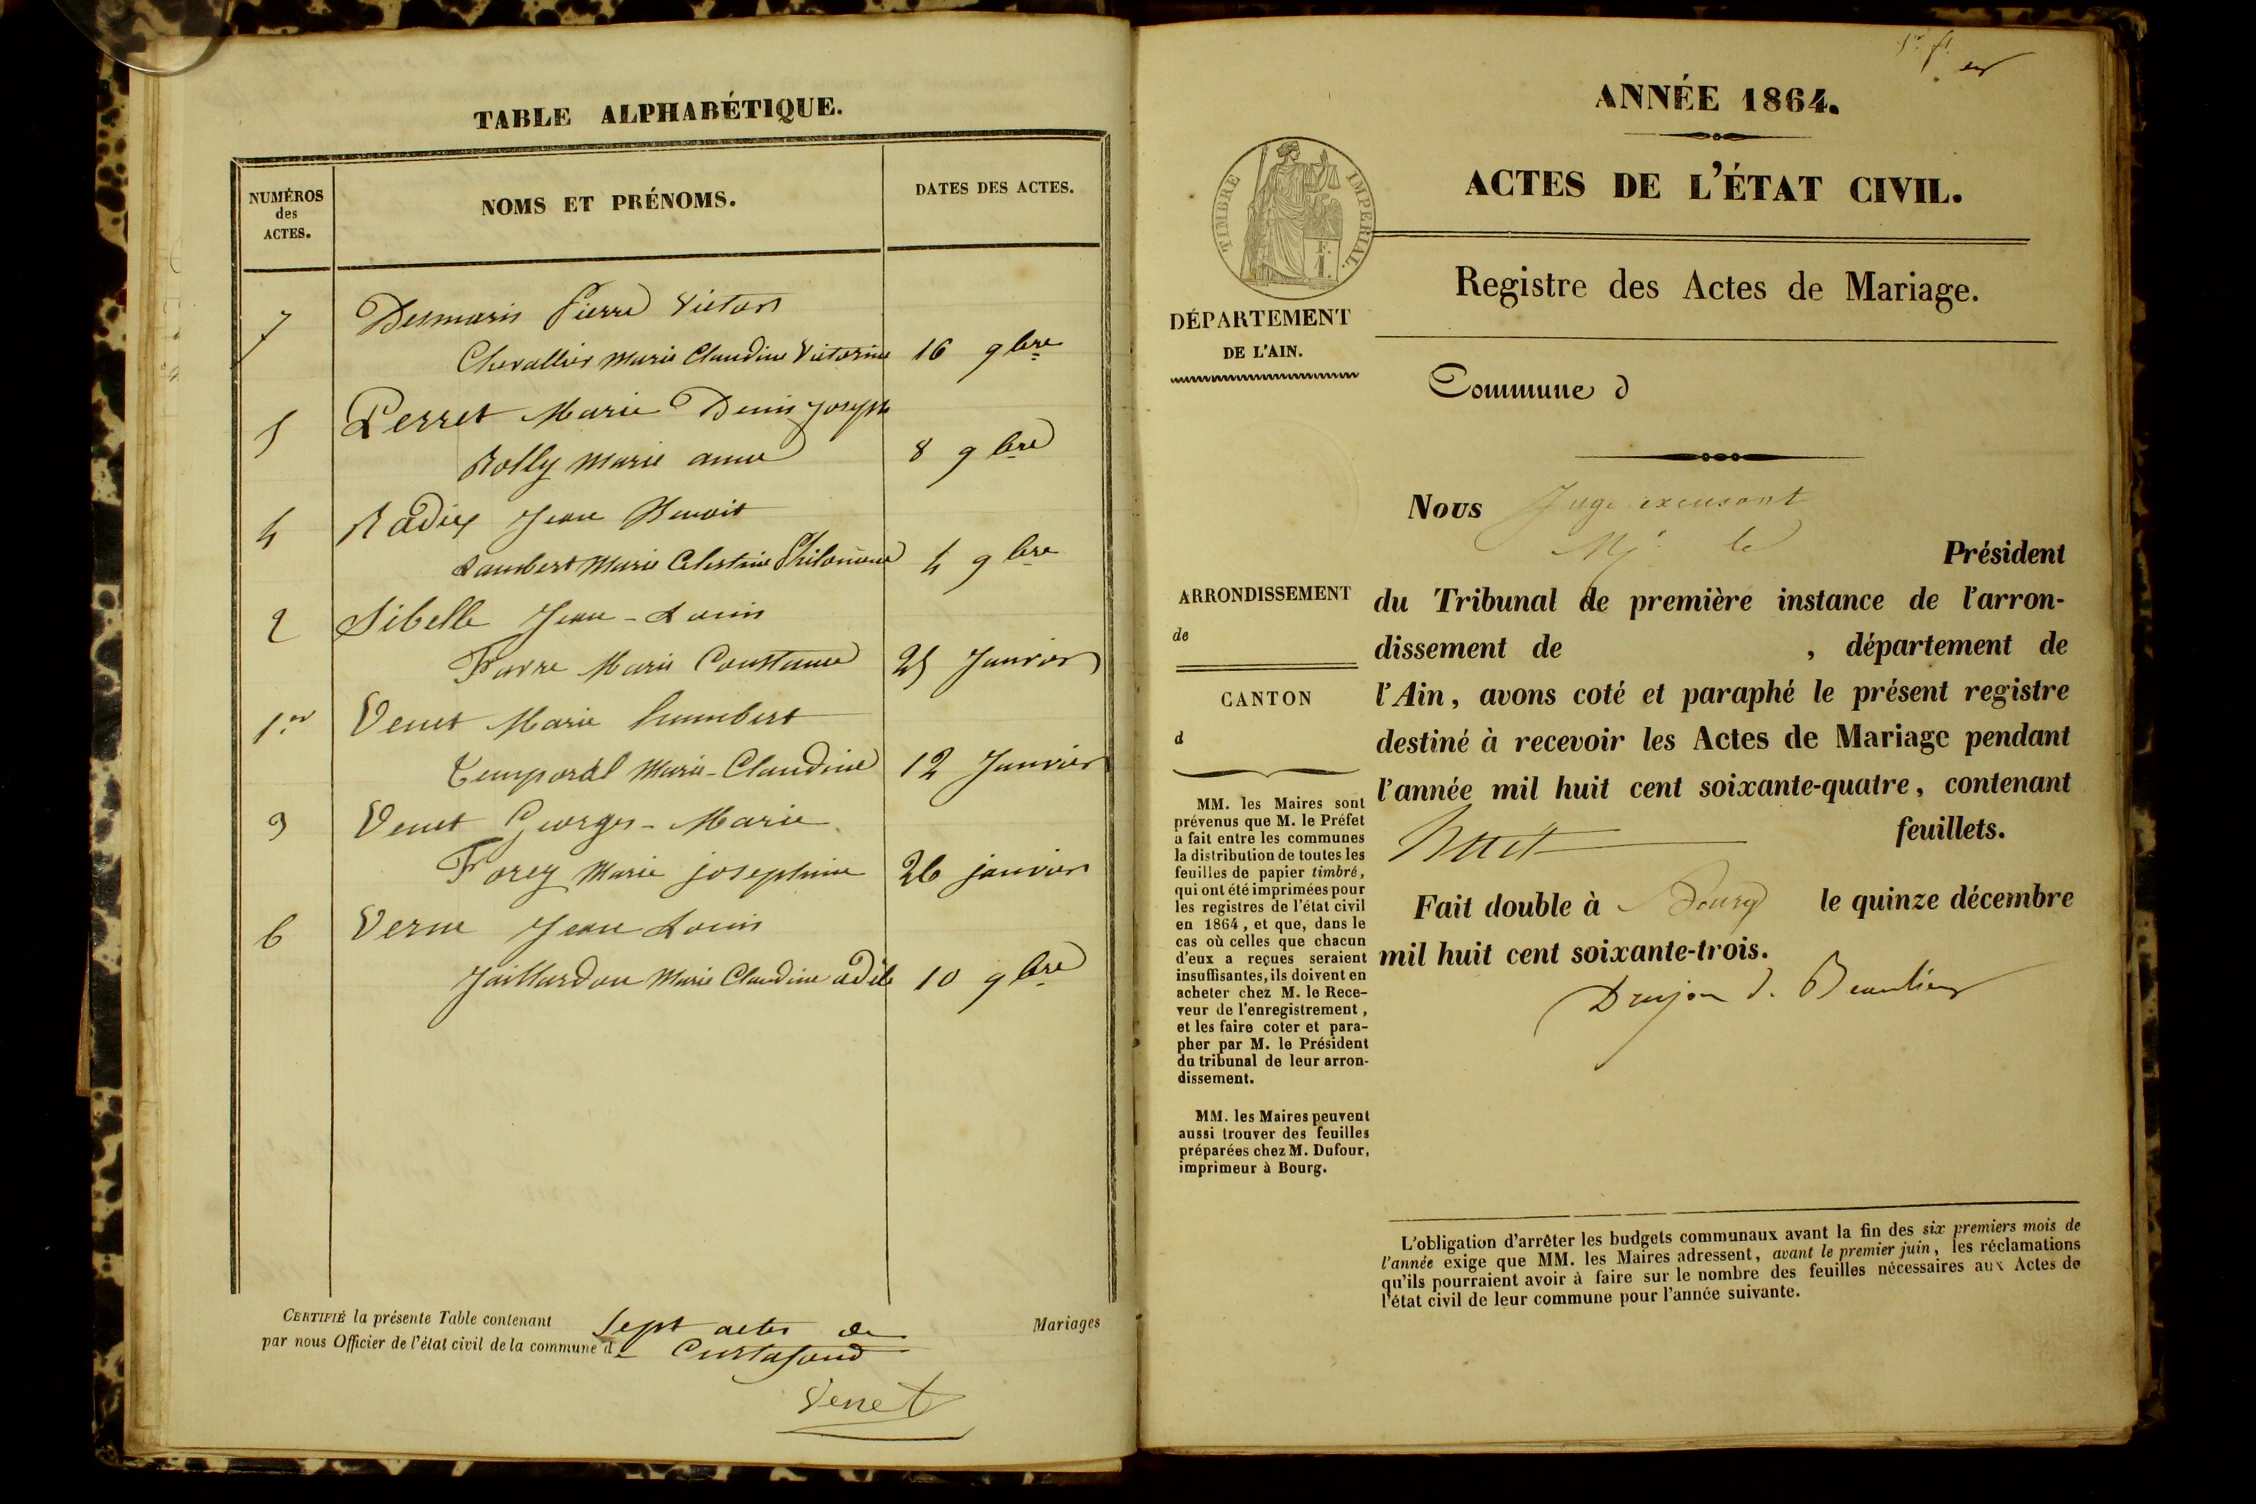 TABLE ALPHABÉTIQUE.
NUMÉROS
des
ACTES.
NOMS ET PRÉNOMS.
DATES DES ACTES.
7 Desmaris Pierre Victor
Chevallier Marie Claudine Victorine 16 9bre
5 Perret Marie Denis Joseph
Rolly Marie anne 8 9bre
4 Radix Jean Benoit
Lambert Marie Celestine Philomène 4 9bre
2 Sibelle Jean-Louis
Favre Marie Constance 25 Janvier
1er Venet Marie humbert
Temporal Marie-Claudine 12 Janvier
3 Venet Georges-Marie
Forey Marie josephine 26 janvier
6 Verne Jean Louis
Jaillardon Marie Claudine adèle 10 9bre
CERTIFIÉ la présente Table contenant Sept actes de Mariages
par nous Officier de l'état civil de la commune de Curtafond
Venet
ANNÉE 1864.
ACTES DE L'ÉTAT CIVIL.
TIMBRE IMPERIAL.
Registre des Actes de Mariage.
DÉPARTEMENT
DE L'AIN.
Commune d
Nous Juge excusant
Mr le
Président
du Tribunal de première instance de l'arron-
dissement de , département de
l'Ain, avons coté et paraphé le présent registre
destiné à recevoir les Actes de Mariage pendant
l'année mil huit cent soixante-quatre, contenant
huit feuillets.
Fait double à Bourg le quinze décembre
mil huit cent soixante-trois.
Drujon d. Beaulieu
ARRONDISSEMENT
de
CANTON
d
MM. les Maires sont
prévenus que M. le Préfet
a fait entre les communes
la distribution de toutes les
feuilles de papier timbré,
qui ont été imprimées pour
les registres de l'état civil
en 1864, et que, dans le
cas où celles que chacun
d'eux a reçues seraient
insuffisantes, ils doivent en
acheter chez M. le Rece-
veur de l'enregistrement,
et les faire coter et para-
pher par M. le Président
du tribunal de leur arron-
dissement.
MM. les Maires peuvent
aussi trouver des feuilles
préparées chez M. Dufour,
imprimeur à Bourg.
L'obligation d'arrêter les budgets communaux avant la fin des six premiers mois de
l'année exige que MM. les Maires adressent, avant le premier juin, les réclamations
qu'ils pourraient avoir à faire sur le nombre des feuilles nécessaires aux Actes de
l'état civil de leur commune pour l'année suivante.